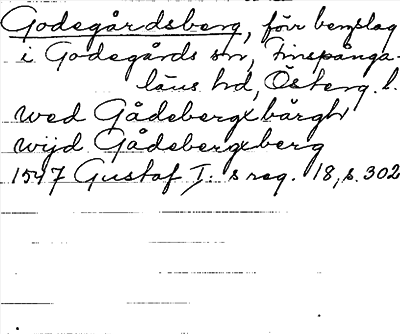 Godegårdsberg, förr bergslag
i Godegårds sn, Finspånga-
läns hd, Österg. l.
wed Gådebergx bärgh
wijd Gådebergxberg
1547 Gustaf I:s reg. 18, s. 302